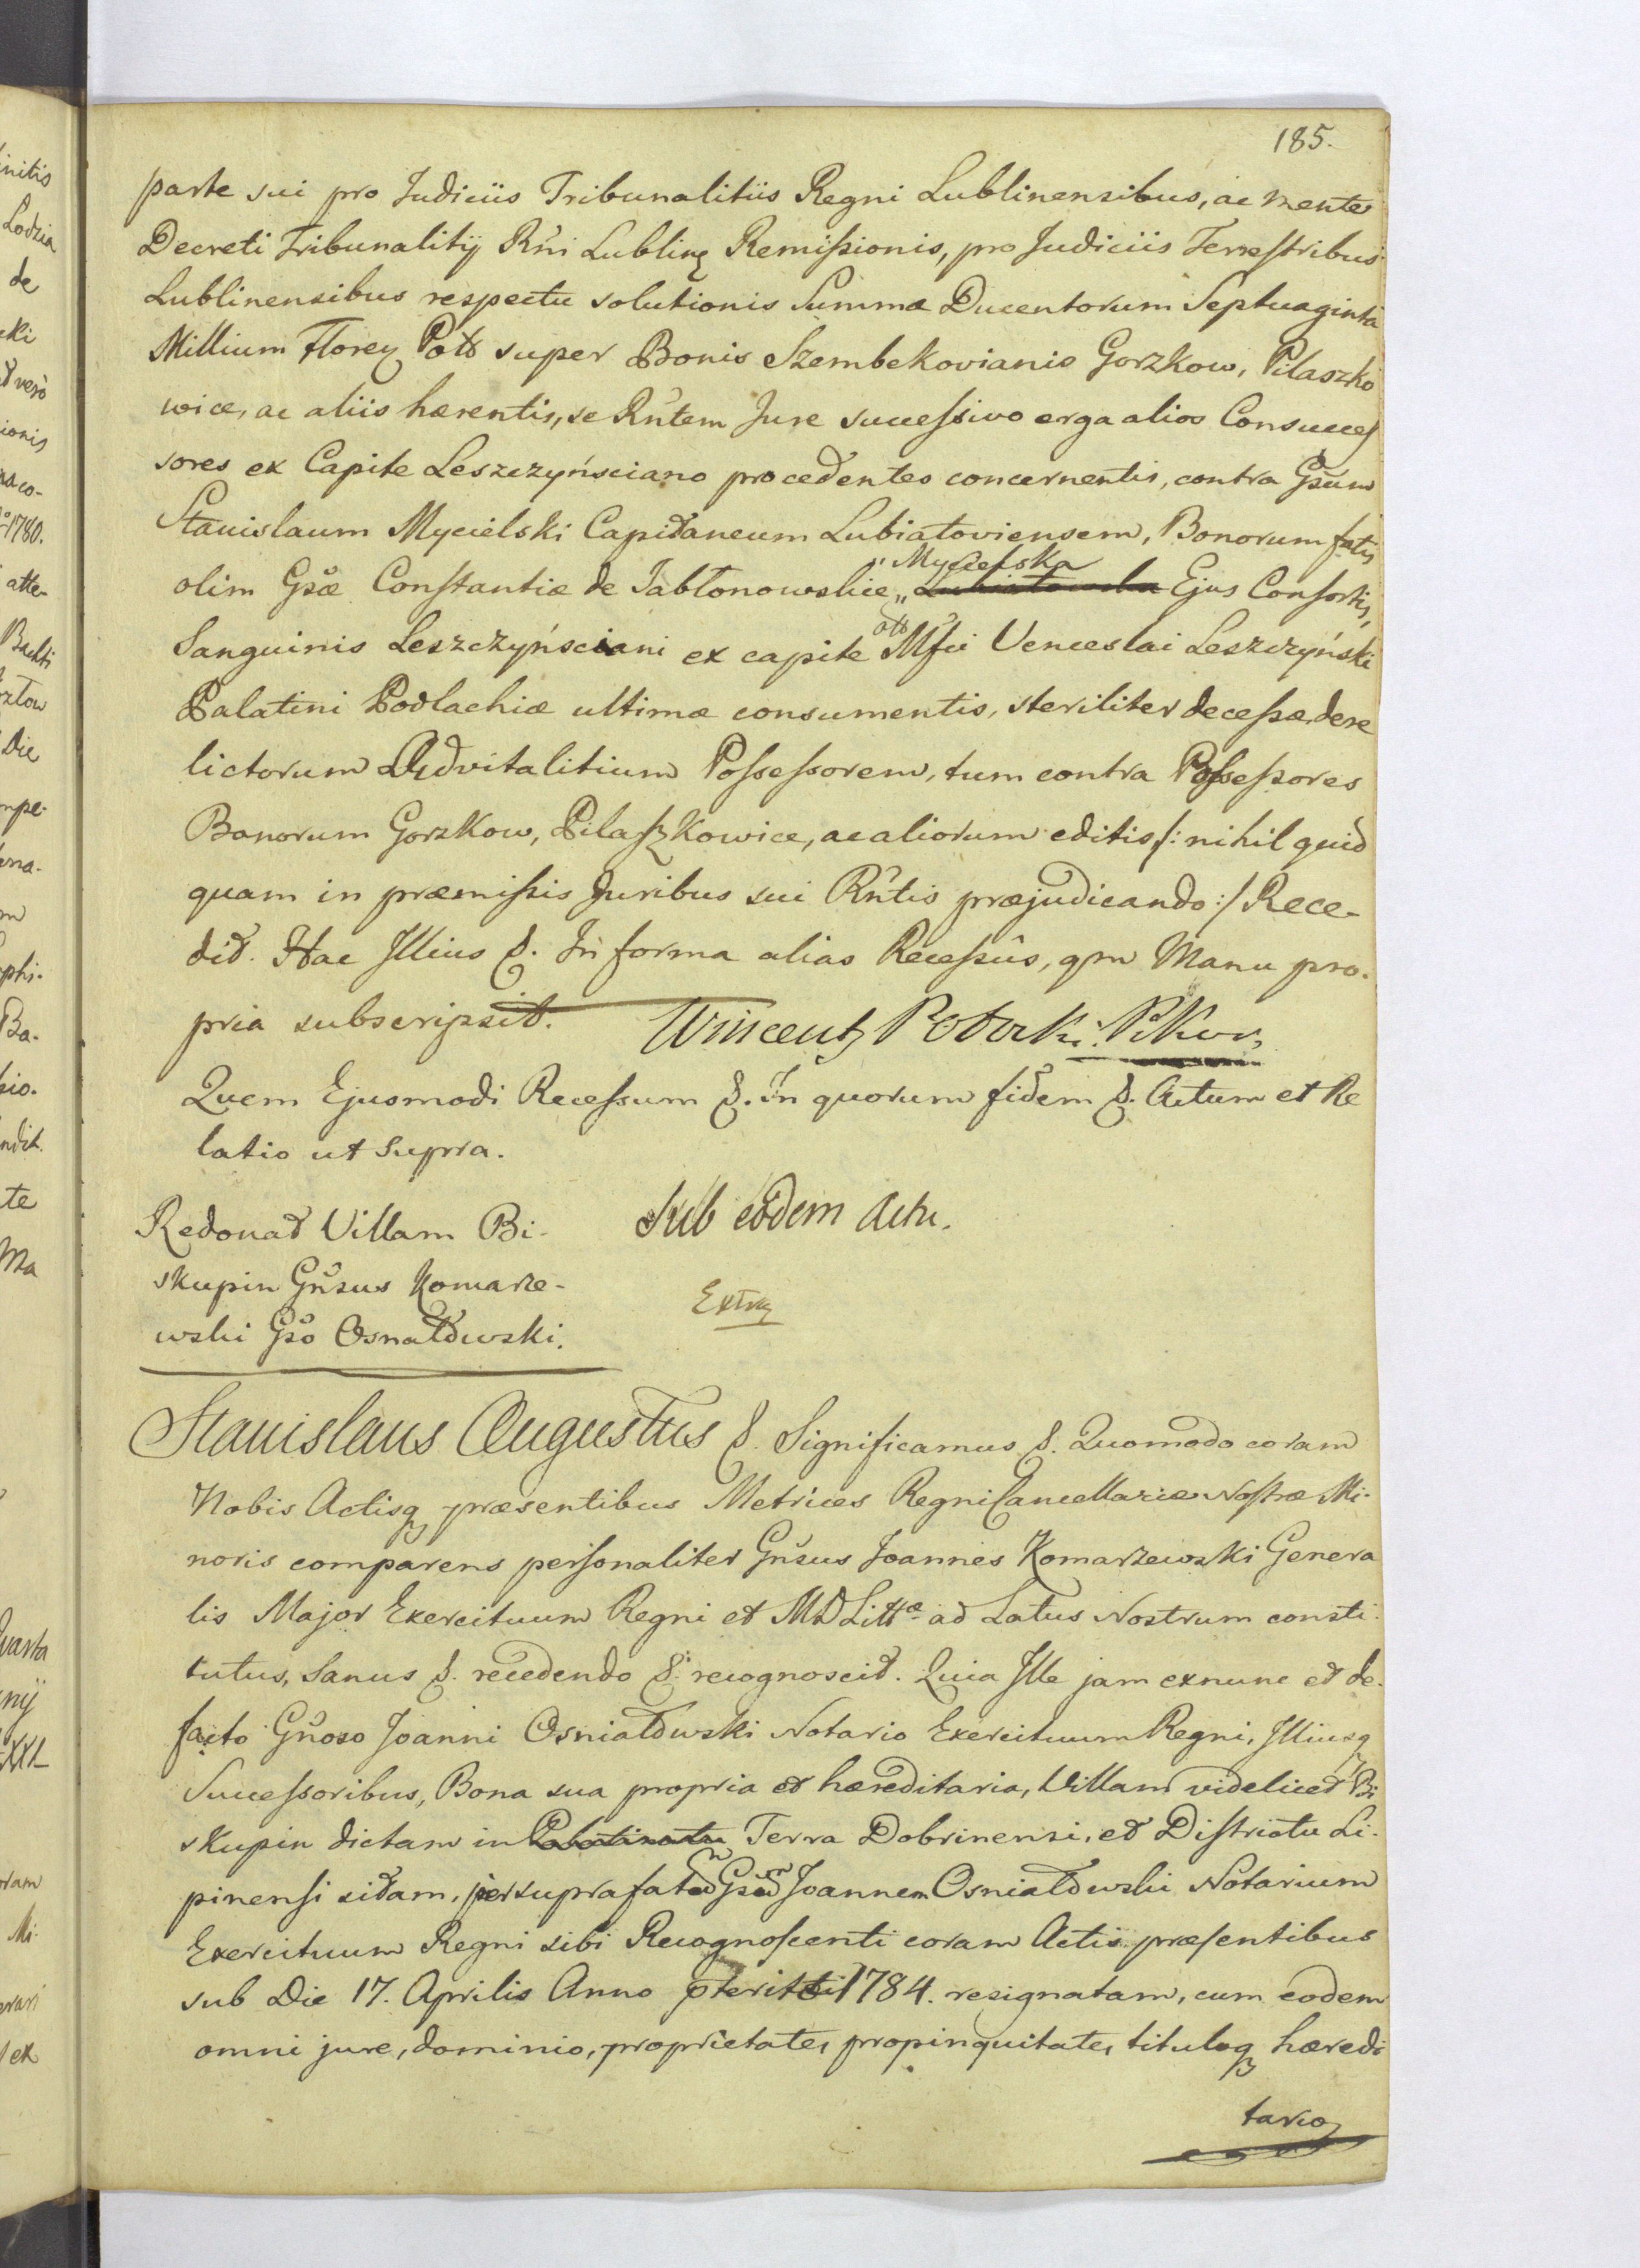 185.
parte sui pro Judiciis Tribunalitiis Regni Lublinensibus, ac mente
Decreti Tribunalitij Rni Lublinę Remissionis, pro Judiciis Terrestribus
Lublinensibus respectu solutionis Summæ Ducentorum Septuaginta
Millium Floreņ super Bonis Szembekovianis Gorzkow, Pilaszko
wice, ac aliis hærentis, se Rntem Jure successivo erga alios Consucces
sores ex Capite Leszczyńsciano procedentes concernentis, contra Gsum
Stanislaum Mycielski Capitaneum Lubiatoviensem, Bonorum fatis
" Mycielska
olim Gsæ Constantiæ de Jabłonowskie " Ejus Consortis,
Sanguinis Leszczyńsciani ex capite olim Mfci Venceslai Leszczyński
Palatini Podlachiæ ultimæ consumentis, steriliter decessæ, dere
lictorum Advitalitium Possessorem, tum contra Possessores
Bonorum Gorzkow, Pilaszkowice, ac aliorum editis /: nihil quid
quam in præmissis Juribus sui Rntis præjudicando :/ Rece-
dit. Hac Illius &. In forma alias Recessûs, qm Manu pro-
pria subscripsit. Wincenty Potocki. P. Kor.
Quem Ejusmodi Recessum &. In quorum fidem &. Actum et Re
latio ut supra.
Redonat Villam Bi-
skupin Gnsus Komarze-
wski Gso Osnałowski.
Sub eodem Actu.
Extrą
Stanislaus Augustus &. Significamus &. Quomodo coram
Nobis Actisq præsentibus Metrices Regni Cancellariæ Nostræ Mi-
noris comparens personaliter Gnsus Joannes Komarzewski Genera
lis Major Exercituum Regni et MD Littæ ad Latus Nostrum consti-
tutus, Sanus &. recedendo &. recognoscit. Quia Ille jam exnunc et de-
facto Gnoso Joanni Osniałowski Notario Exercituum Regni, Illiusq
Successoribus, Bona sua propria et hæreditaria, Villam videlicet Bi
skupin dictam in Palatinatu Terra Dobrinensi, et Districtu Li-
pinensi sitam, per suprafatum Gsum Joannem Osniałowski Notarium
Exercituum Regni sibi Recognoscenti coram Actis præsentibus
sub Die 17. Aprilis Anno pteriti 1784. resignatam, cum eodem
omni jure, dominio, proprietate, propinquitate, tituloq hæredi
tario,